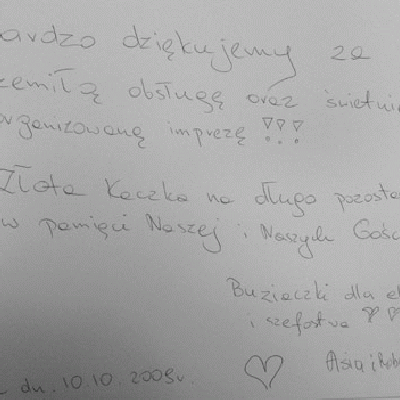 ardzo dziękujemy za
zemiłą obsługę oraz świetni
organizowaną imprezę !!!
Złota Kaczka na długo pozosta
w pamięci Naszej i Naszych Gośc
Buziaczki dla
i szefostwa
dn. 10.10.2009r.
Asia i Rob